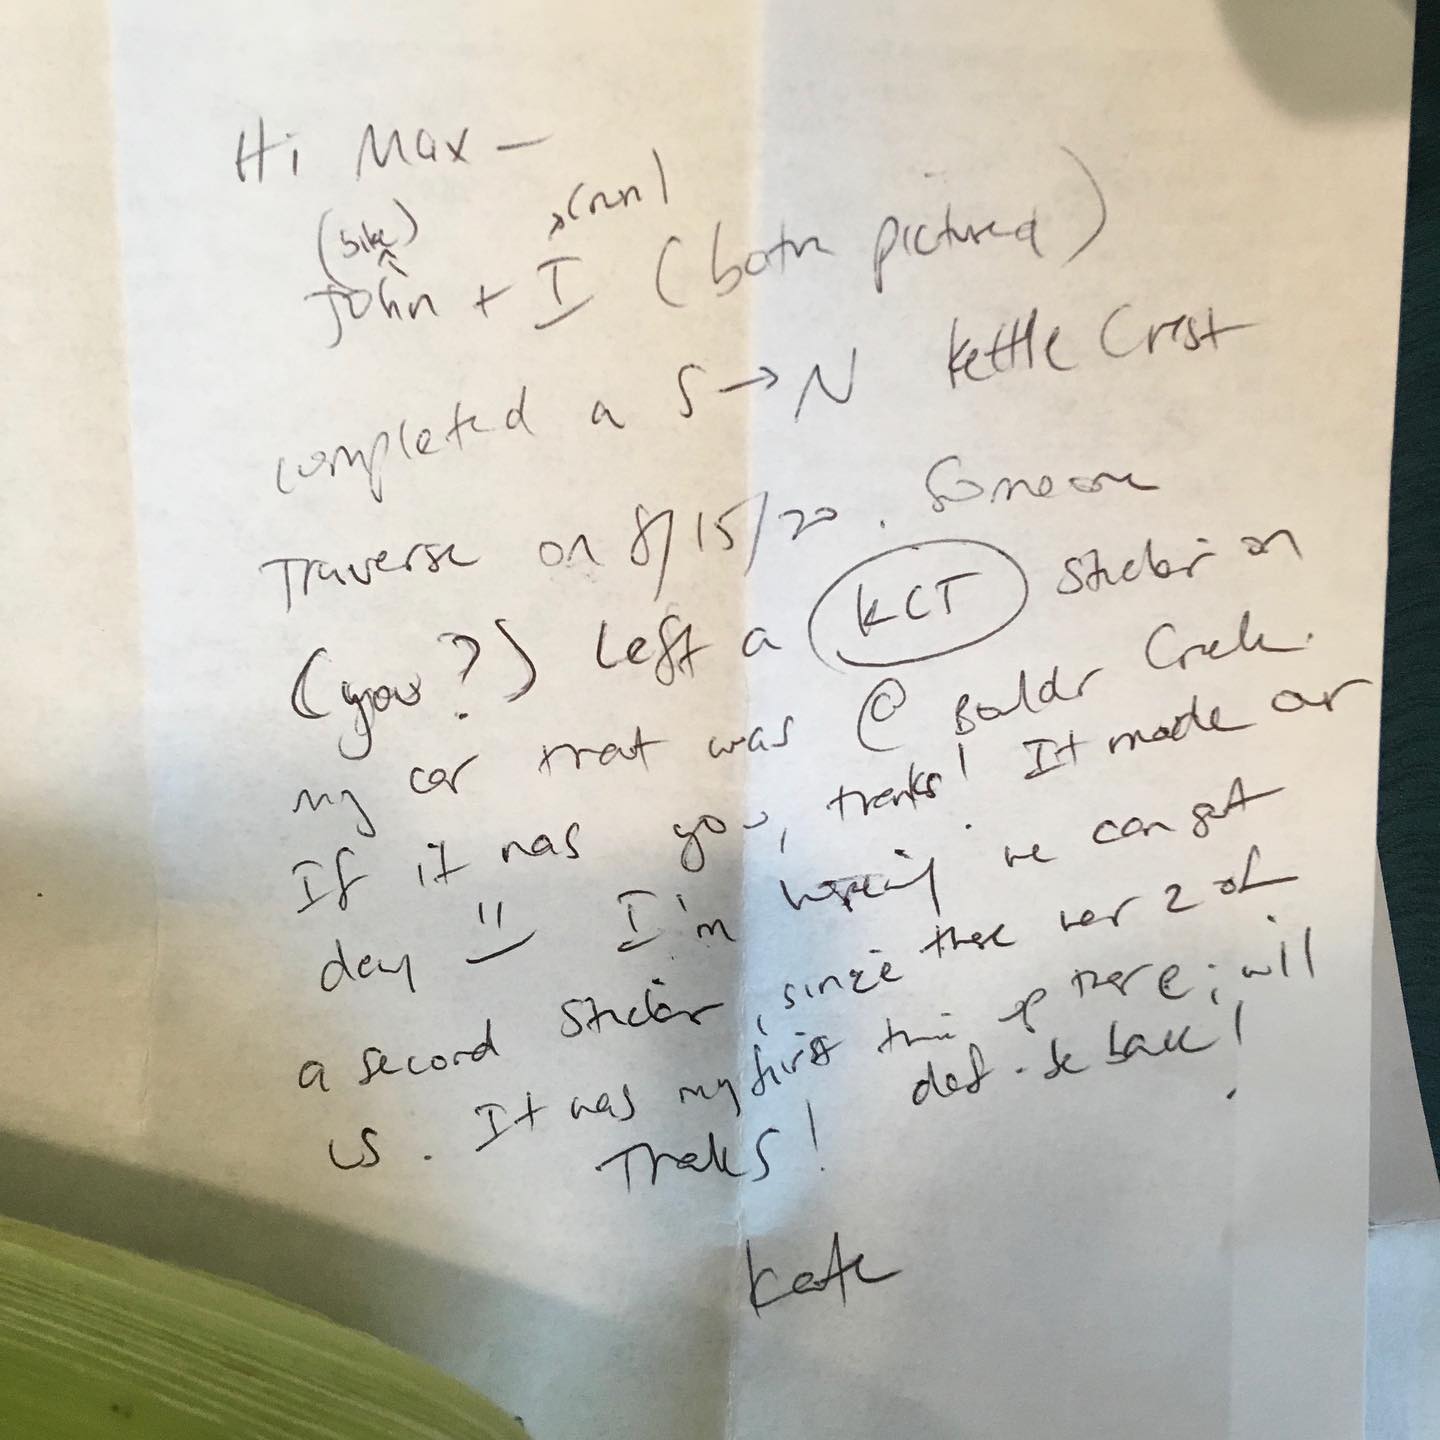 Hi Max –
(bike) (run)
John + I (both pictured)
completed a S → N Kettle Crest
Traverse on 8/15/20. Someone
(you?) left a KCT sticker on
my car that was @ Boulder Creek.
If it was you, thanks! It made our
day :) I'm hoping we can get
a second sticker, since there were 2 of
us. It was my first time up there; will
def. be back!
Thanks!
Kate